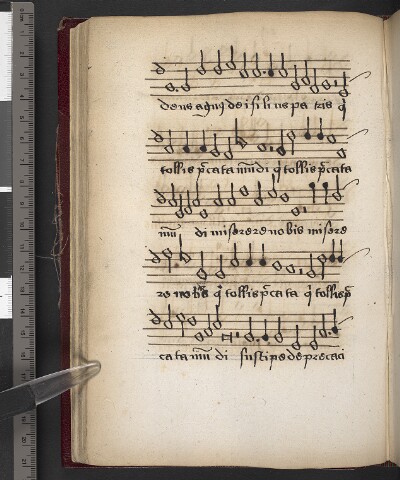 deus agnus dei filius patris q
tollis pccata mudi q tollis pccata
mu di miserere nobis misere
re nobis q tollis pccata q tollis p
cata mu di suscipe deprecaci